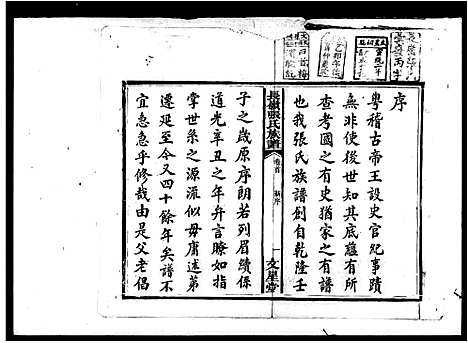 序
粵稽古帝王設史官紀事蹟
無非使後世知其底蘊有所
查考國之有史猶家之有譜
也我張氏族譜創自乾隆壬
長嶺張氏族譜
卷首
新序
一
文星堂
子之歲原序朗若列眉續係
道光辛丑年弁言瞭如指
掌世系之源流似毋庸述第
遷延至今又四十餘年矣譜不
宜急急乎修哉由是父老倡